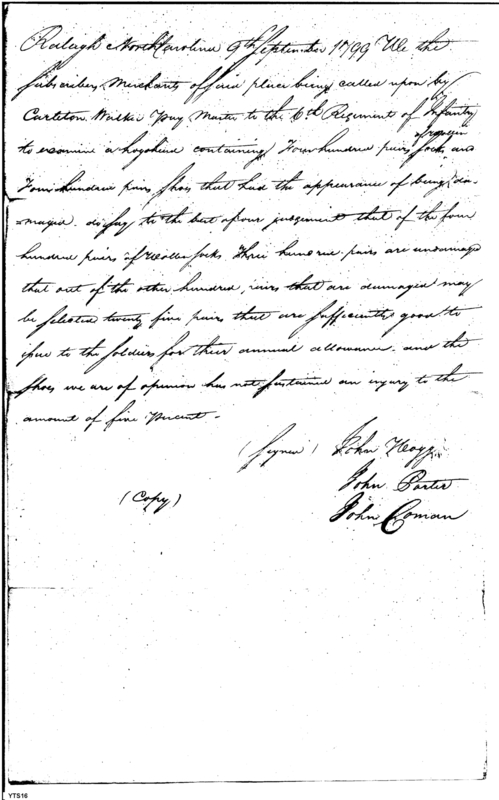 Raleigh North Carolina 9th September 1799 We the
Subscribers, Merchants of said place being called upon by
Carleton Walker Pay Master to the 6th Regiment of Infantry
to examine a hogshead containing Four hundred pairs socks and
Four hundred pairs shoes that had the appearance of being da-
-maged. do say to the best of our judgement that of the four
hundred pairs of Woolen socks Three hundred pairs are undamaged
that out of the other hundred, pairs that are damaged may
be selected twenty five pairs that are sufficiently good to
issue to the soldiers for their annual allowance. and the
shoes we are of opinion has not sustained an injury to the
amount of five Percent.
(signed) John Hogg
John Porter
John Coman
(Copy)
YTS16